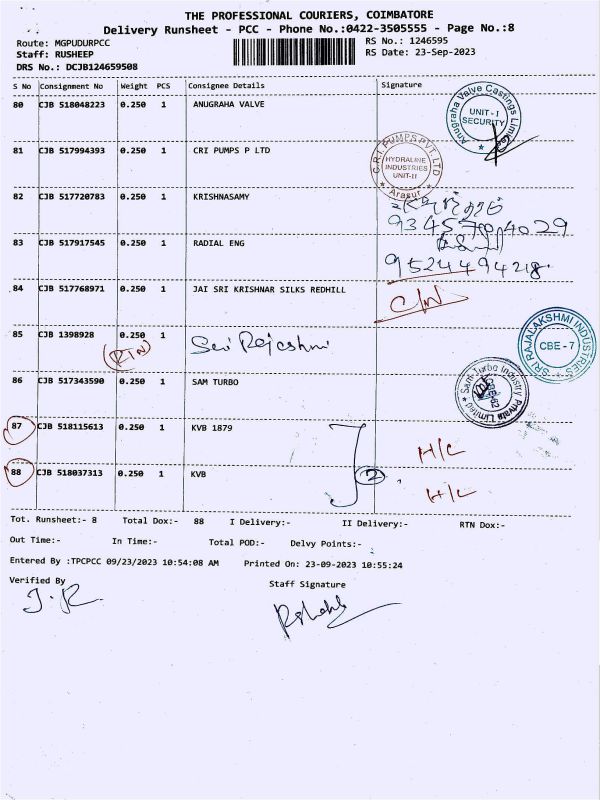 THE PROFESSIONAL COURIERS, COIMBATORE
Delivery Runsheet - PCC - Phone No.:0422-3505555 - Page No.:8
Route: MGPUDURPCC
RS No.: 1246595
Staff: RUSHEEP
RS Date: 23-Sep-2023
DRS No.: DCJB124659508
S No Consignment No Weight PCS Consignee Details Signature
80 CJB 518048223 0.250 1 ANUGRAHA VALVE
Anugraha Valve Castings Limited
UNIT - I
SECURITY
81 CJB 517994393 0.250 1 CRI PUMPS P LTD
C.R.I. PUMPS PVT. LTD
HYDRALINE
INDUSTRIES
UNIT-II
Arasur
82 CJB 517720783 0.250 1 KRISHNASAMY
9345704029
83 CJB 517917545 0.250 1 RADIAL ENG
9524494218
84 CJB 517768971 0.250 1 JAI SRI KRISHNAR SILKS REDHILL
C/N
85 CJB 1398928 0.250 1 Sri Rajeshmi
RTN
SRI RAJALAKSHMI INDUSTRIES
CBE - 7
86 CJB 517343590 0.250 1 SAM TURBO
Sam Turbo Industry Private Limited
87 CJB 518115613 0.250 1 KVB 1879
H/C
88 CJB 518037313 0.250 1 KVB
2
H/C
Tot. Runsheet:- 8 Total Dox:- 88 I Delivery:- II Delivery:- RTN Dox:-
Out Time:- In Time:- Total POD:- Delvy Points:-
Entered By :TPCPCC 09/23/2023 10:54:08 AM Printed On: 23-09-2023 10:55:24
Verified By Staff Signature
J.R.